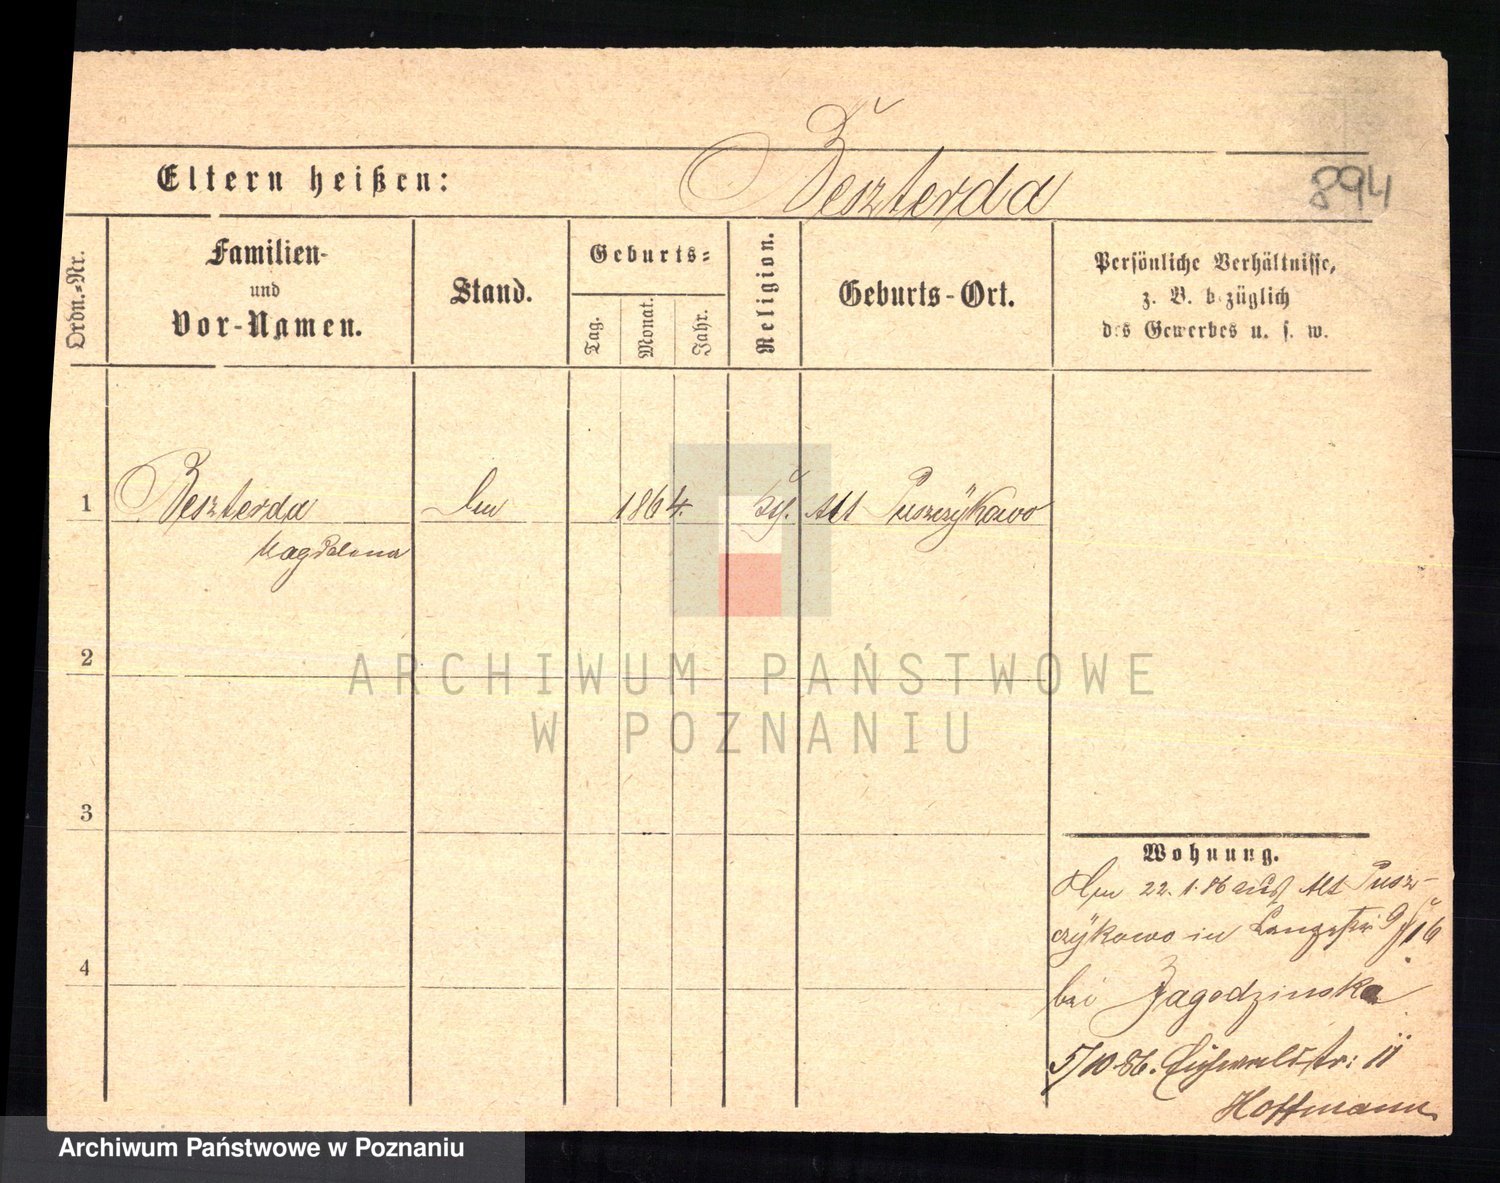 Beszterda
Eltern heißen:
894
Ordn.-Nr.
Familien-
und
Vor-Namen.
Stand.
Geburts-
Tag.
Monat.
Jahr.
Religion.
Geburts-Ort.
Persönliche Verhältnisse,
z. B. bezüglich
des Gewerbes u. s. w.
1 Beszterda 1864. Alt Puszczÿkowo
Magdalena
2
3
4
Wohnung.
22.1.86 aus Alt Pusz-
czÿkowo in Langestr: 9/16
bei Jagodzinska
5/10 86. Eichwaldstr: 11
Hoffmann
ARCHIWUM PAŃSTWOWE
W POZNANIU
Archiwum Państwowe w Poznaniu